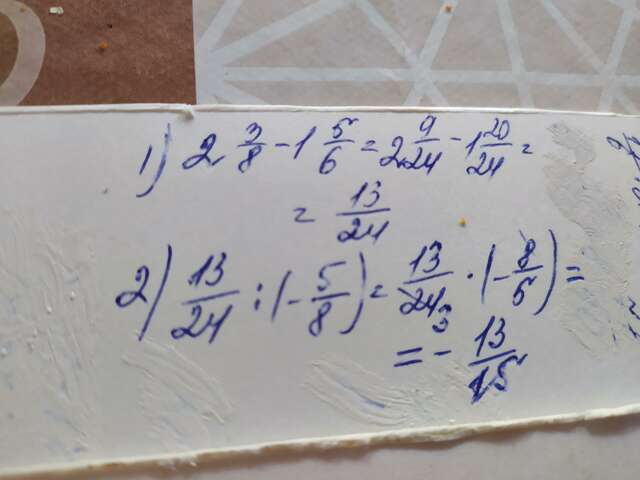 1) 2 3/8 - 1 5/6 = 2 9/24 - 1 20/24 =
= 13/24
2) 13/24 : (- 5/8) = 13/24 3 · (- 8/5) =
= - 13/15